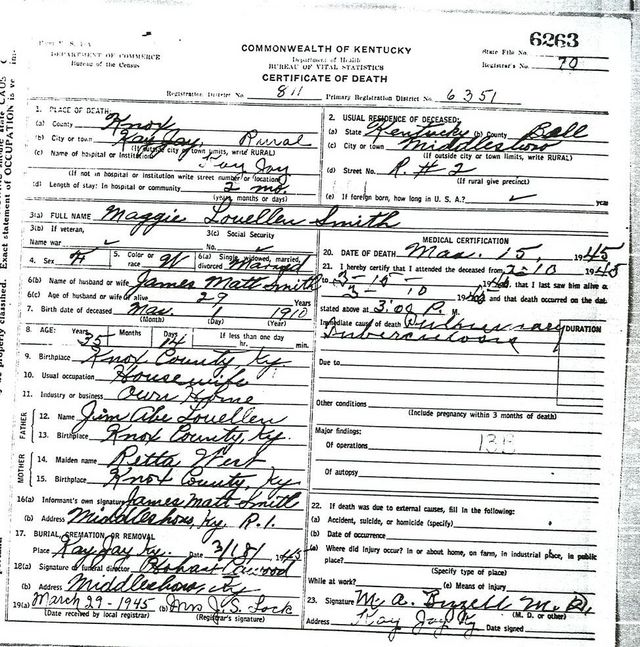 DEPARTMENT OF COMMERCE
Bureau of the Census
COMMONWEALTH OF KENTUCKY
Department of Health
BUREAU OF VITAL STATISTICS
CERTIFICATE OF DEATH
State File No. 6263
Registrar's No. 70
Registration District No. 811 Primary Registration District No. 6351
1. PLACE OF DEATH:
(a) County Knox
(b) City or town Kay Jay Rural
(If outside city or town limits, write RURAL)
(c) Name of hospital or Institution Kay Jay
(If not in hospital or institution write street number or location)
(d) Length of stay: In hospital or community 2 mo.
(years, months or days)
2. USUAL RESIDENCE OF DECEASED:
(a) State Kentucky (b) County Bell
(c) City or town Middlesboro
(If outside city or town limits, write RURAL)
(d) Street No. R. # 2
(If rural give precinct)
(e) If foreign born, how long in U. S. A.? year
3(a) FULL NAME Maggie Louellen Smith
3(b) If veteran,
Name war
3(c) Social Security
No.
4. Sex F 5. Color or race W 6(a) Single, widowed, married, divorced Married
6(b) Name of husband or wife James Matt Smith
6(c) Age of husband or wife if alive 29 Years
7. Birth date of deceased Mar. 1 1910
(Month) (Day) (Year)
8. AGE: Years 35 Months Days 14 If less than one day
hr. min.
9. Birthplace Knox County, Ky.
10. Usual occupation Housewife
11. Industry or business Own Home
FATHER
12. Name Jim Abe Louellen
13. Birthplace Knox County, Ky.
MOTHER
14. Maiden name Retta West
15. Birthplace Knox County, Ky
16(a) Informant's own signature James Matt Smith
(b) Address Middlesboro, Ky. R. 1.
17. BURIAL, CREMATION OR REMOVAL
Place Kay Jay Ky. Date 3/18/ 1945
18(a) Signature of funeral director Hobart Cawood
(b) Address Middlesboro, Ky
19(a) March 29-1945 (b) Mrs J. S. Lock
(Date received by local registrar) (Registrar's signature)
MEDICAL CERTIFICATION
20. DATE OF DEATH Mar. 15, 1945
21. I hereby certify that I attended the deceased from 2-10 1945
to 3-15 1945, that I last saw him alive on
3-10 1945 and that death occurred on the date
stated above at 3:00 P. M.
Immediate cause of death Pulmonary
Tuberculosis
DURATION
Due to
Other conditions
(Include pregnancy within 3 months of death)
Major findings:
Of operations 13B
Of autopsy
22. If death was due to external causes, fill in the following:
(a) Accident, suicide, or homicide (specify)
(b) Date of occurrence
(c) Where did injury occur? In or about home, on farm, in industrial place, in public
place?
(Specify type of place)
While at work? (e) Means of injury
23. Signature M. A. Bizzell M. D.
(M. D. or other)
Address Kay Jay Ky Date signed
Exact statement of OCCUPATION is ve
be properly classified.